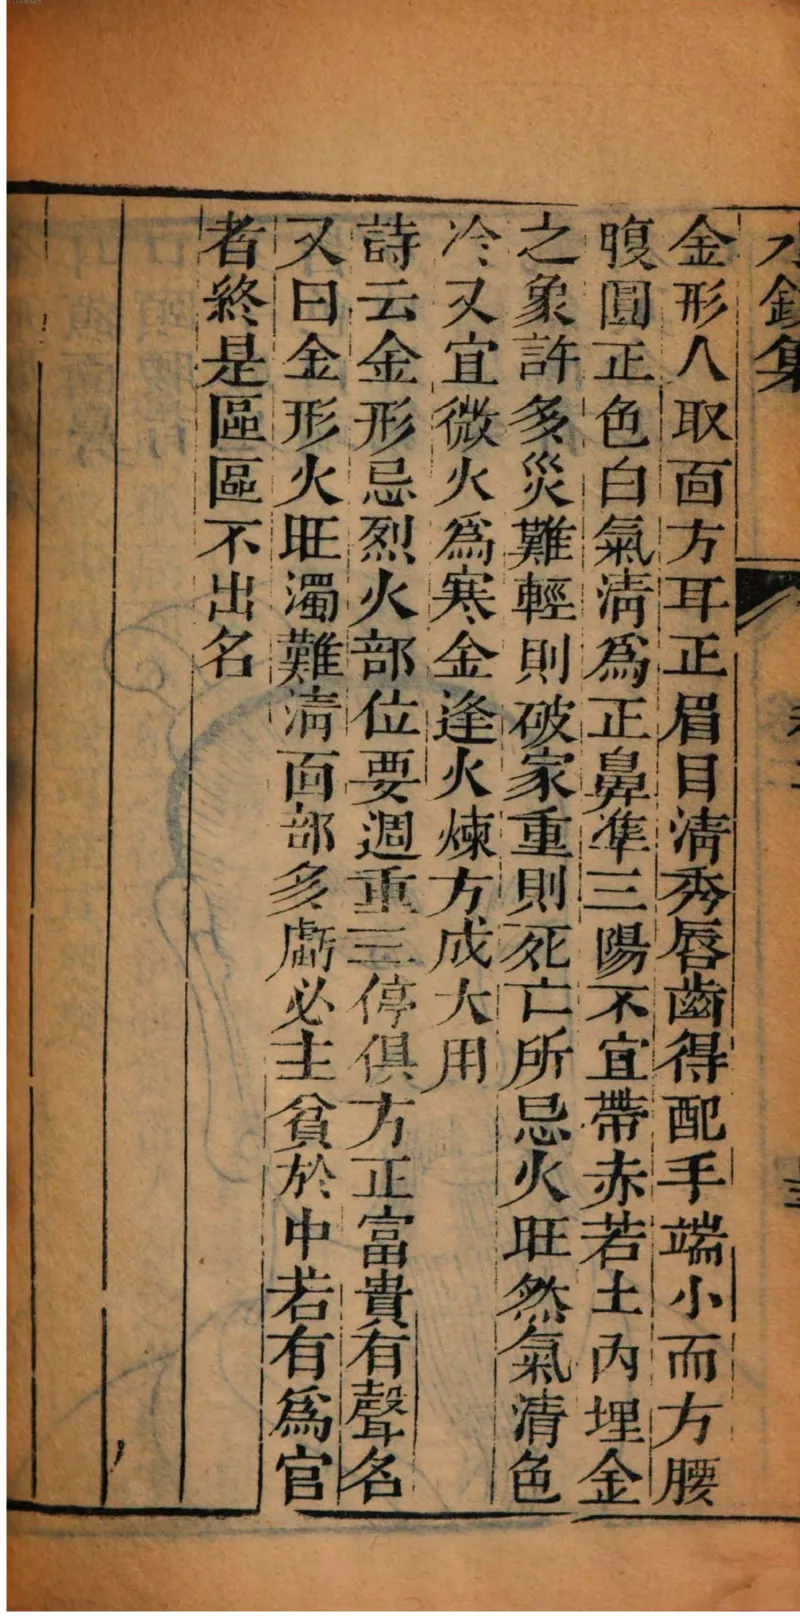 金形人取面方耳正眉目淸秀唇齒得配手端小而方腰
腹圓正色白氣淸爲正鼻準三陽不宜帶赤若土內埋金
之象許多災難輕則破家重則死亡所忌火旺然氣清色
冷又宜微火爲寒金逢火煉方成大用
詩云金形忌烈火部位要週重三停俱方正富貴有聲名
又曰金形火旺濁難淸面部多虧必主貧於中若有爲官
者終是區區不出名